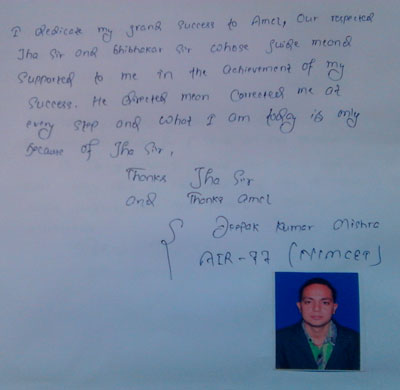 I dedicate my grand success to Amel, Our respected
Jha Sir and Bhibhakar Sir whose guide meand
Supported to me in the achievement of my
Success. He directed mean corrected me at
every step and what I am today is only
because of Jha Sir,
Thanks Jha Sir
and Thanks Amel
Deepak Kumar Mishra
AIR-97 (NIMCET)